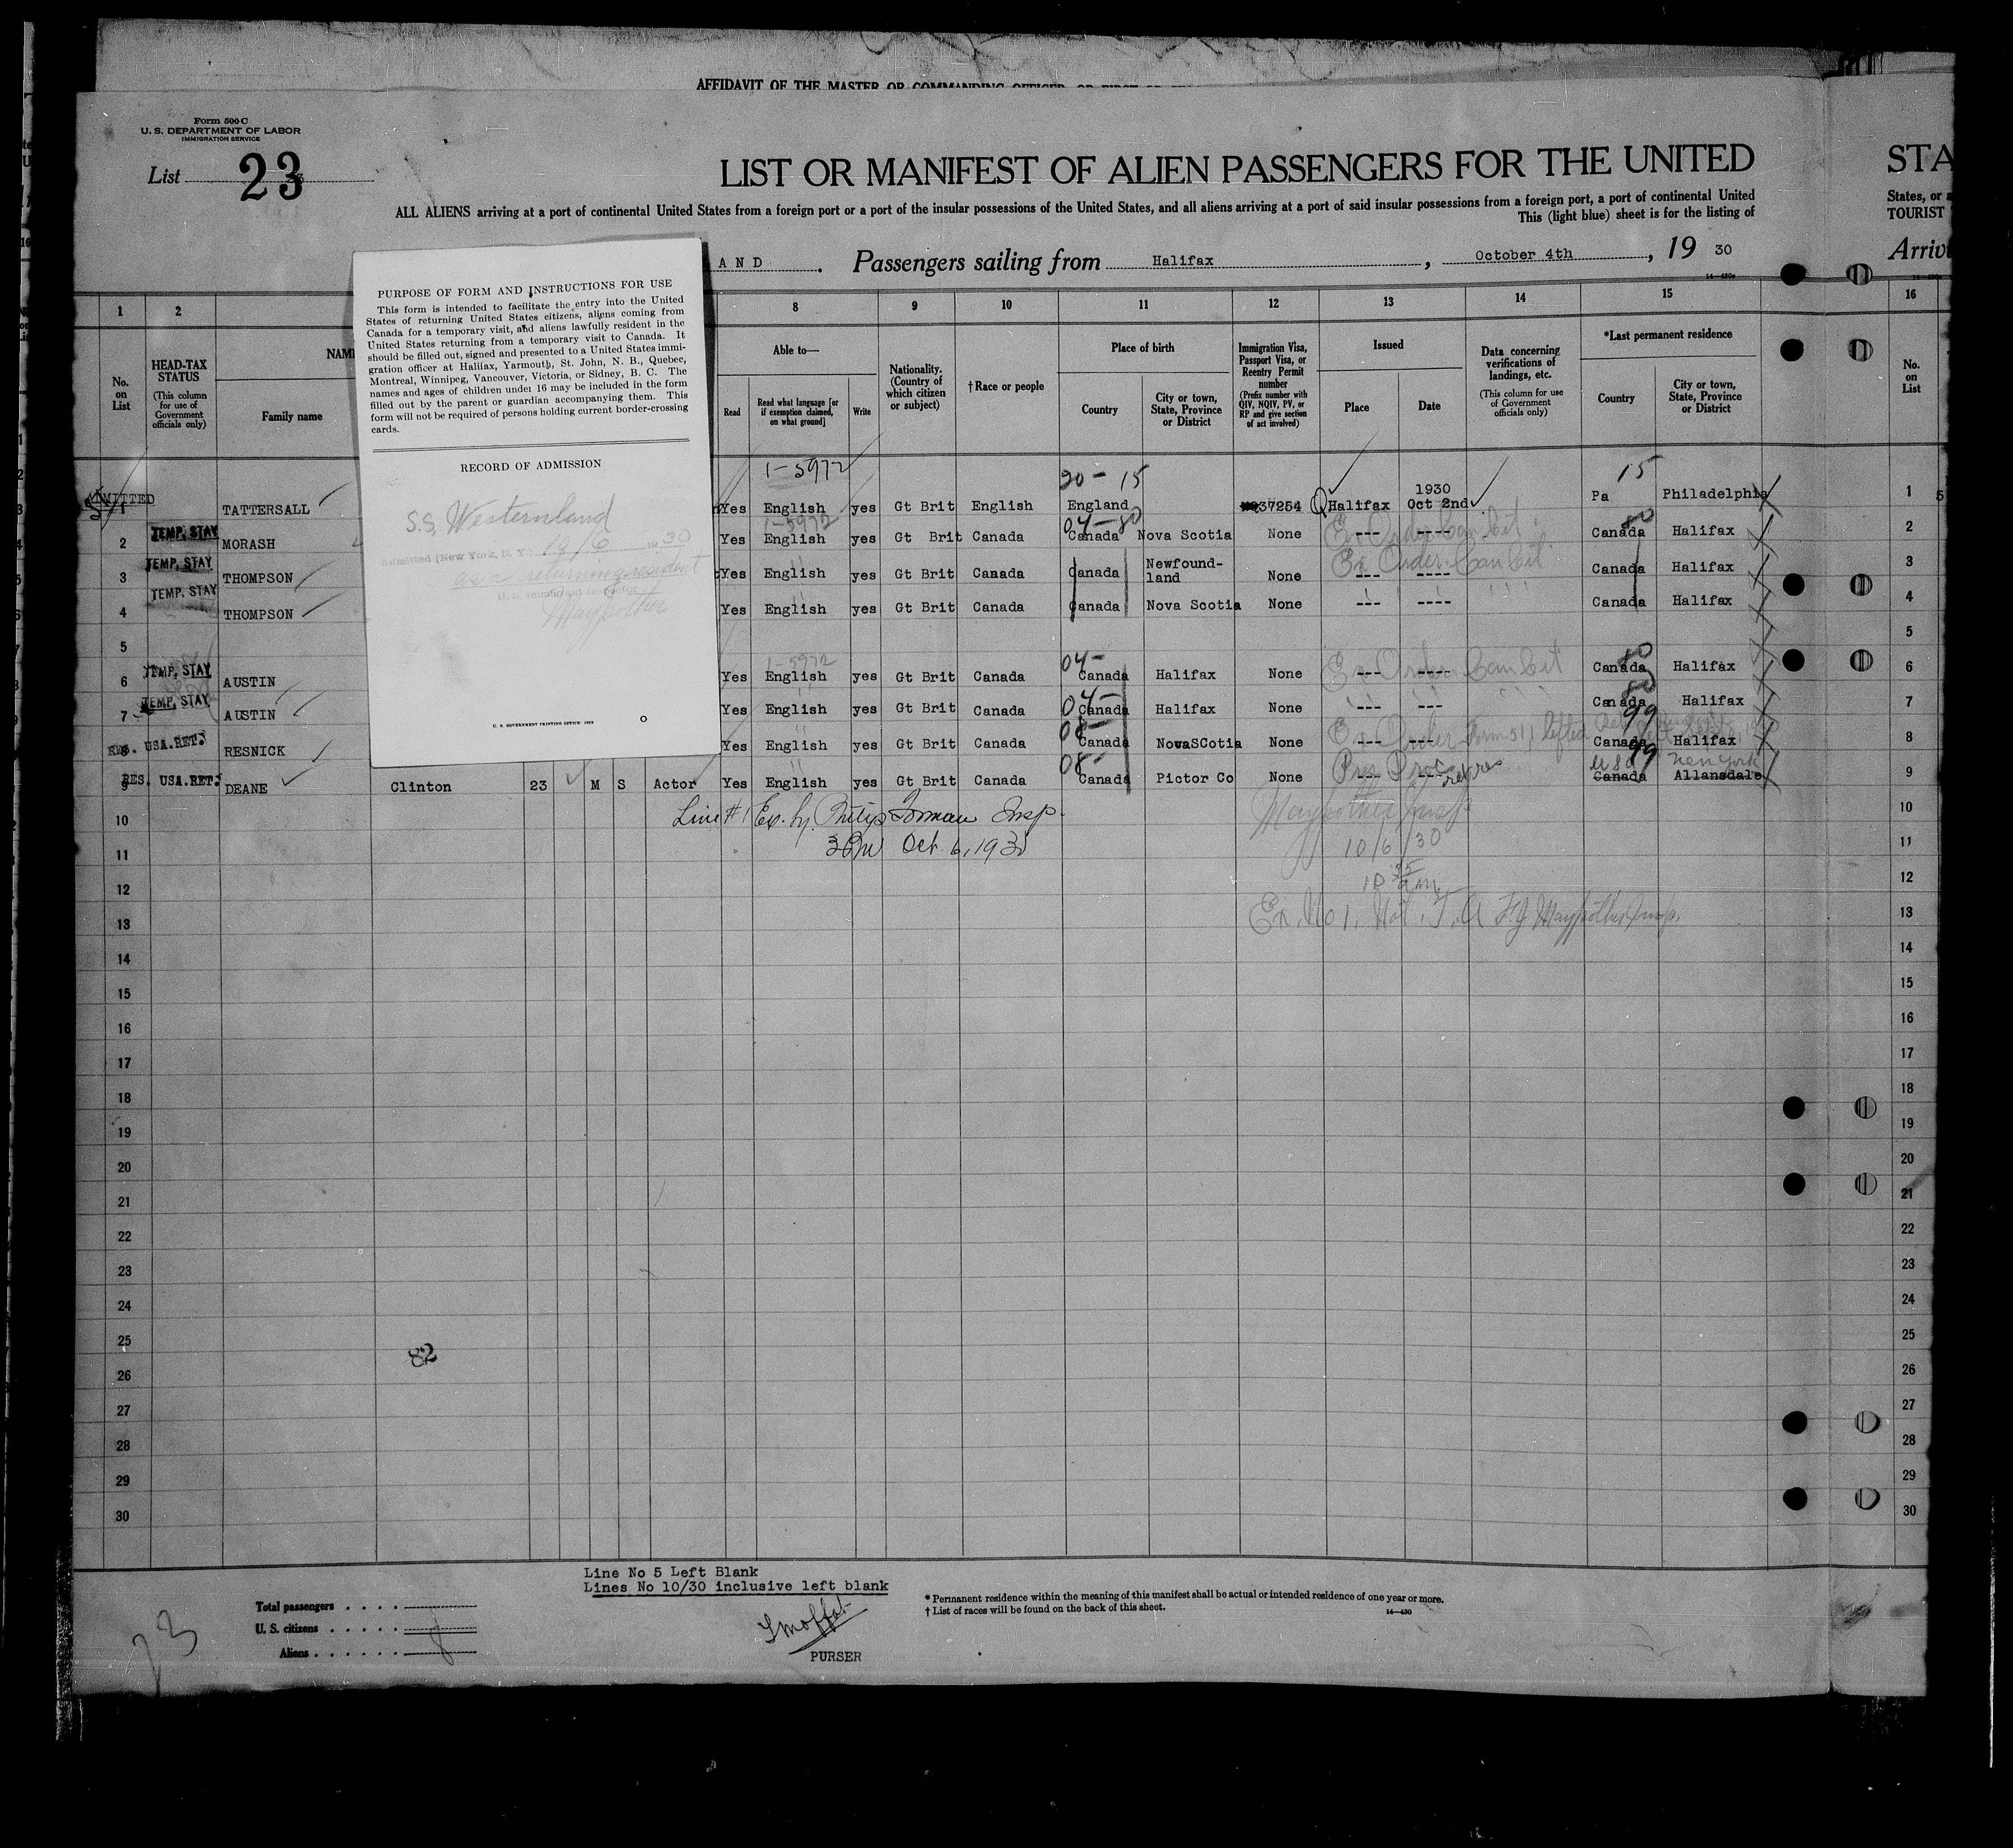 AFFIDAVIT OF THE MASTER OR COMMANDING OFFICER, OR FIRST OR
Form 500 C
U. S. DEPARTMENT OF LABOR
IMMIGRATION SERVICE
List 23
LIST OR MANIFEST OF ALIEN PASSENGERS FOR THE UNITED
STA
ALL ALIENS arriving at a port of continental United States from a foreign port or a port of the insular possessions of the United States, and all aliens arriving at a port of said insular possessions from a foreign port, a port of continental United
States, or a
This (light blue) sheet is for the listing of
TOURIST
AND . Passengers sailing from Halifax , October 4th , 19 30
Arriv
PURPOSE OF FORM AND INSTRUCTIONS FOR USE
This form is intended to facilitate the entry into the United
States of returning United States citizens, aliens coming from
Canada for a temporary visit, and aliens lawfully resident in the
United States returning from a temporary visit to Canada. It
should be filled out, signed and presented to a United States immi-
gration officer at Halifax, Yarmouth, St. John, N. B., Quebec,
Montreal, Winnipeg, Vancouver, Victoria, or Sidney, B. C. The
names and ages of children under 16 may be included in the form
filled out by the parent or guardian accompanying them. This
form will not be required of persons holding current border-crossing
cards.
RECORD OF ADMISSION
S.S. Westernland
Admitted (New York, N. Y.) 10/6 1930
as a returning resident
U. S. Immigrant Inspector
Maypother
U. S. GOVERNMENT PRINTING OFFICE 1928
1 2 8 9 10 11 12 13 14 15 16
No. on List
HEAD-TAX STATUS
(This column for use of Government officials only)
NAME
Family name
Able to—
Read
Read what language [or if exemption claimed, on what ground]
Write
Nationality. (Country of which citizen or subject)
†Race or people
Place of birth
Country
City or town, State, Province or District
Immigration Visa, Passport Visa, or Reentry Permit number
(Prefix number with QIV, NQIV, PV, or RP and give section of act involved)
Issued
Place
Date
Data concerning verifications of landings, etc.
(This column for use of Government officials only)
*Last permanent residence
Country
City or town, State, Province or District
No. on List
1-5972 20-15 15
ADMITTED 1 TATTERSALL Yes English yes Gt Brit English England 37254 Q Halifax 1930 Oct 2nd Pa Philadelphia 1
1-5972 04-80 80
2 TEMP. STAY MORASH Yes English yes Gt Brit Canada Canada Nova Scotia None --- --- Canada Halifax 2
Ex Order Can Cit
3 TEMP. STAY THOMPSON Yes English yes Gt Brit Canada Canada Newfound-land None --- ---- Canada Halifax 3
Ex Order Can Cit
4 TEMP. STAY THOMPSON Yes English yes Gt Brit Canada Canada Nova Scotia None --- ---- Canada Halifax 4
5 5
1-5972 04- 80
6 TEMP. STAY AUSTIN Yes English yes Gt Brit Canada Canada Halifax None --- ---- Canada Halifax 6
Ex Order Can Cit
04- 80
7 TEMP. STAY AUSTIN Yes English yes Gt Brit Canada Canada Halifax None Canada Halifax 7
08- 99
8 RES. USA.RET. RESNICK Yes English yes Gt Brit Canada Canada NovaSCotia None --- --- Canada Halifax 8
Ex Order Form 511 lifted
08- 99 USA New York
9 RES. USA.RET. DEANE Clinton 23 M S Actor Yes English yes Gt Brit Canada Canada Pictor Co None --- --- Canada Allansdale 9
Line #1 Ex. by Philip Forman Insp.
Maypother Insp
10 10
3 PM Oct. 6, 1930
10/6/30
11 11
10 35 am
12 12
Ex. No 1. Not. T.A F J Maypother Insp.
13 13
14 14
15 15
16 16
17 17
18 18
19 19
20 20
21 21
22 22
23 23
24 24
25 25
82
26 26
27 27
28 28
29 29
30 30
Line No 5 Left Blank
Lines No 10/30 inclusive left blank
* Permanent residence within the meaning of this manifest shall be actual or intended residence of one year or more.
† List of races will be found on the back of this sheet.
14—430
Total passengers
U. S. citizens
Aliens
8
23
PURSER